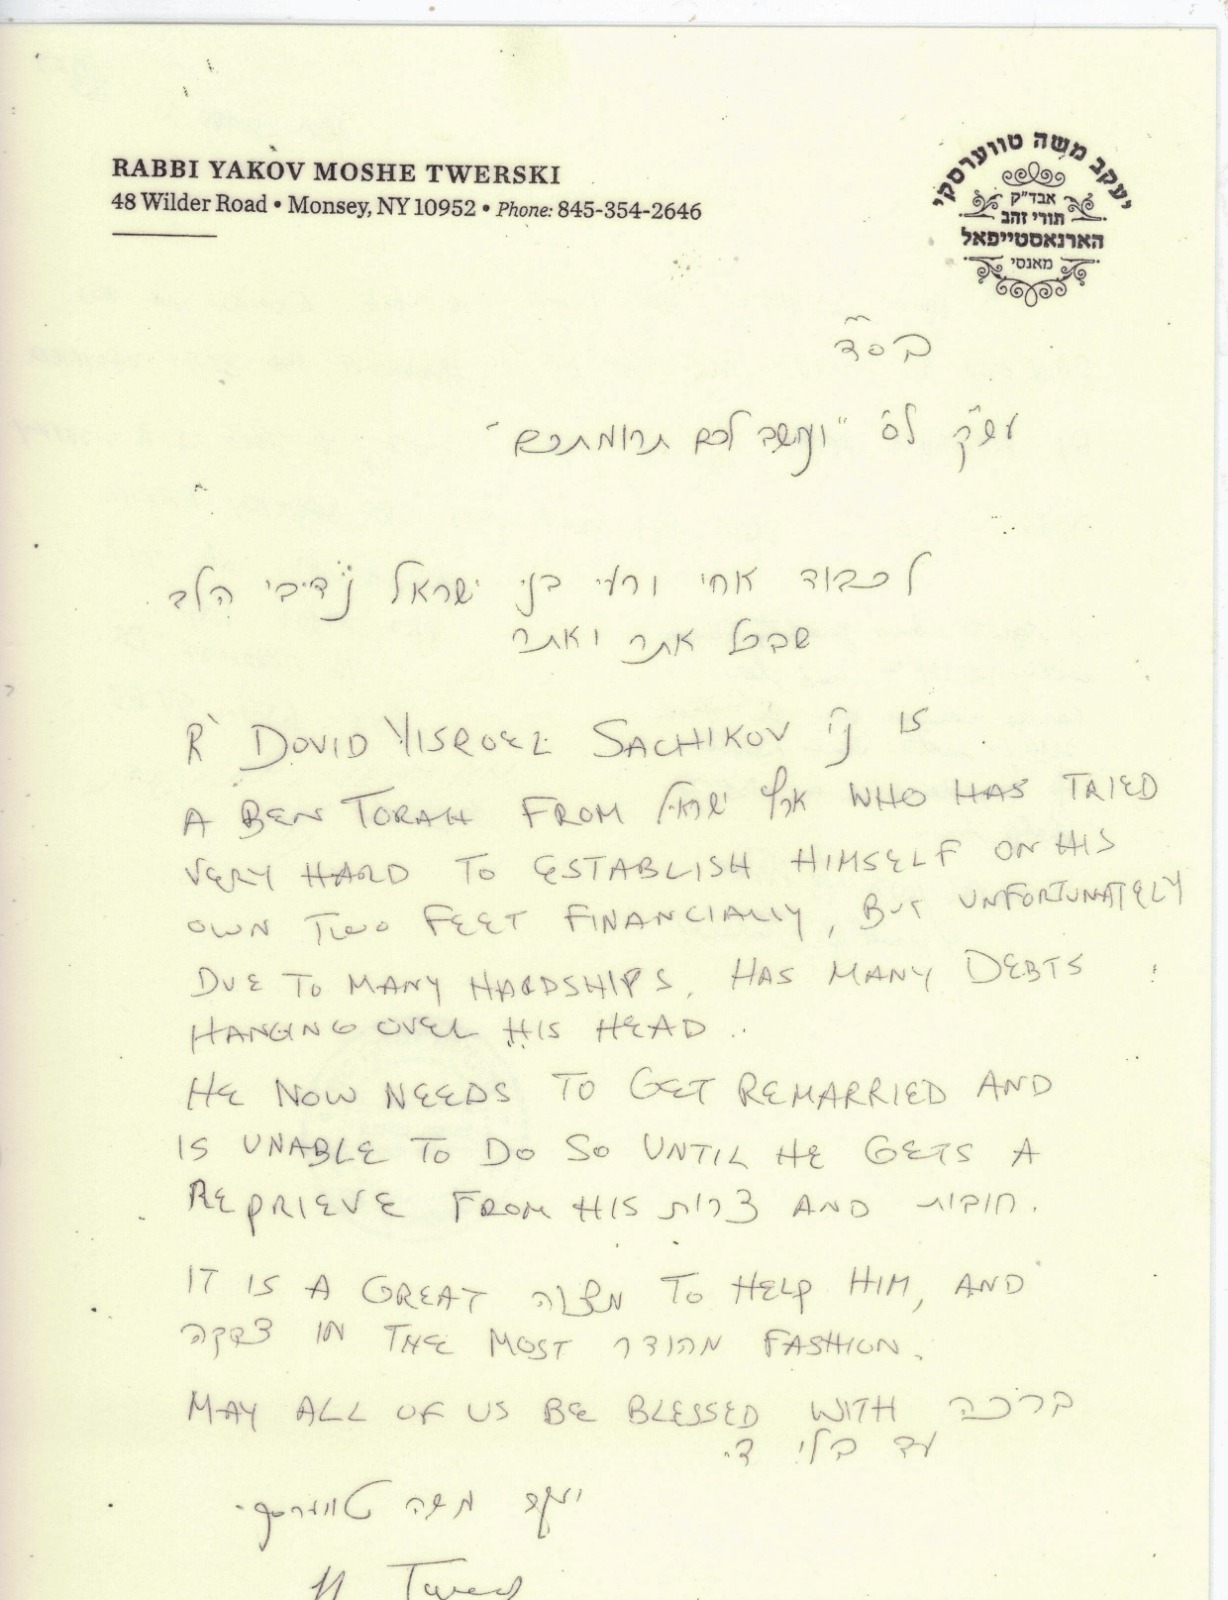 RABBI YAKOV MOSHE TWERSKI
48 Wilder Road • Monsey, NY 10952 • Phone: 845-354-2646
יעקב משה טווערסקי
אבד״ק
תורי זהב
הארנאסטייפאל
מאנסי
בס״ד
עש״ק לס׳ "ונחשב לכם תרומתכם"
לכבוד אחי ורעי בני ישראל נדיבי הלב
שבכל אתר ואתר
R' DOVID YISROEL SACHIKOV נ״י IS
A BEN TORAH FROM ארץ ישראל WHO HAS TRIED
VERY HARD TO ESTABLISH HIMSELF ON HIS
OWN TWO FEET FINANCIALLY, BUT UNFORTUNATELY
DUE TO MANY HARDSHIPS, HAS MANY DEBTS
HANGING OVER HIS HEAD..
HE NOW NEEDS TO GET REMARRIED AND
IS UNABLE TO DO SO UNTIL HE GETS A
REPRIEVE FROM HIS צרות AND חובות.
IT IS A GREAT מצוה TO HELP HIM, AND
צדקה IN THE MOST מהודר FASHION.
MAY ALL OF US BE BLESSED WITH ברכה
עד בלי די.
יעקב משה טווערסקי